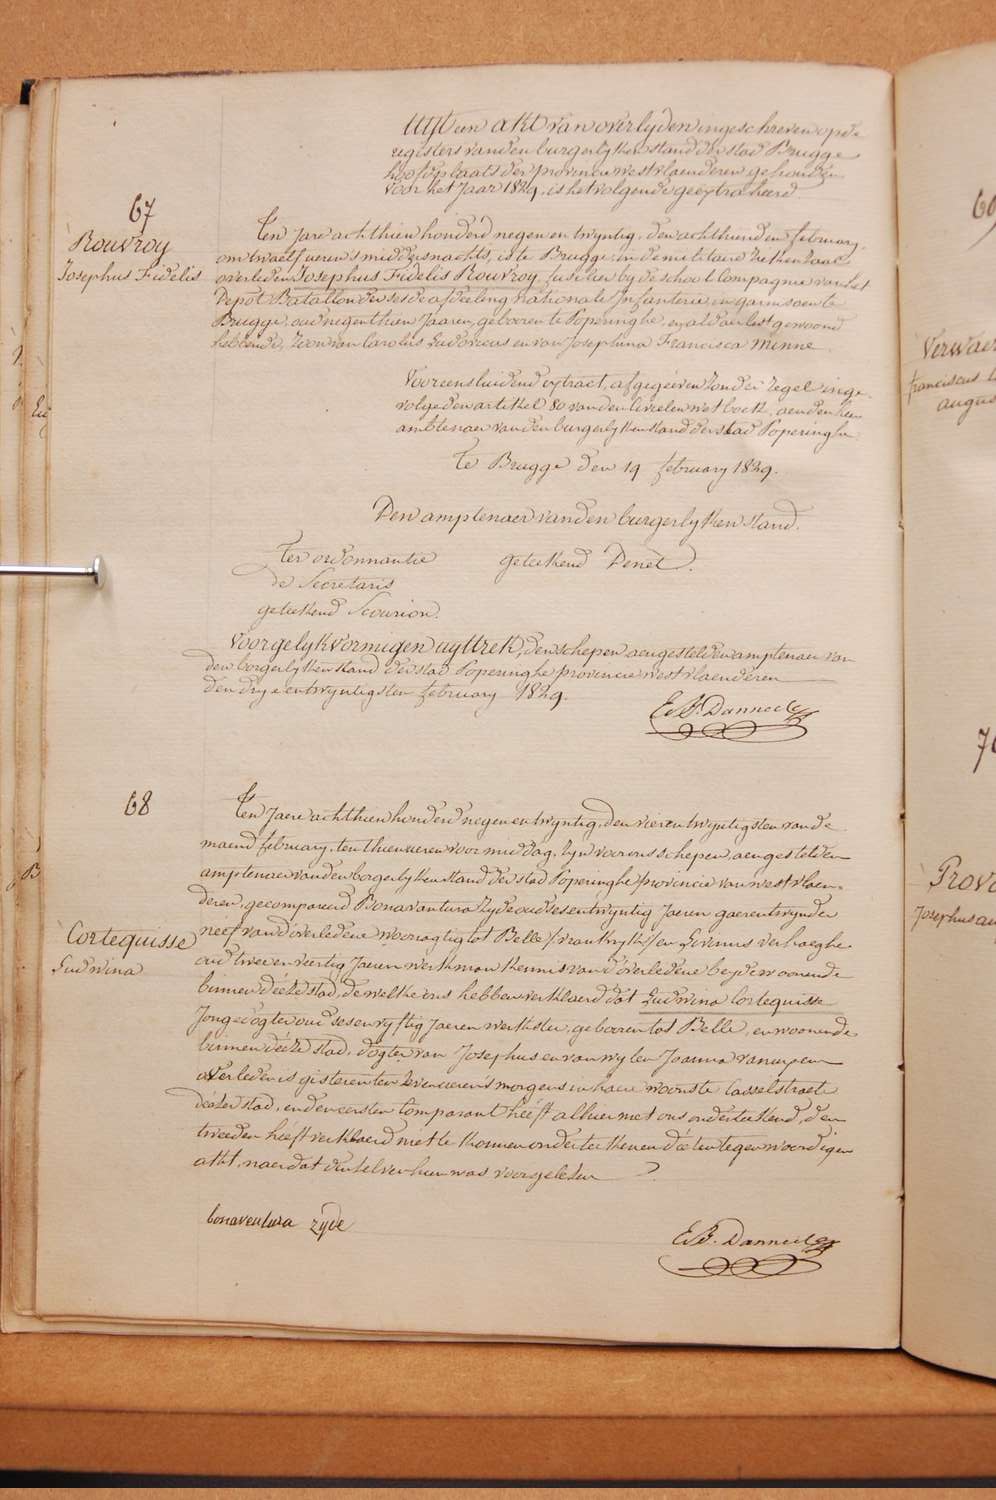 Uijt een akt van overlijden ingeschreven op de
registers van den burgerlyken stand der stad Brugge
hoofdplaats der provincie westvlaenderen gehouden
voor het Jaar 1829, is het volgende geextraheerd.
67
Rouvroy
Josephus Fidelis
Ten jare achthien honderd negen en twyntig, den achthienden february,
om twaelf ueren 's middernachts, is te Brugge in de militaire ziekenzaal
overleden Josephus Fidelis Rouvroy, fuselier by de school Compagnie van het
Depot Batallon der sesde afdeeling nationale Infanterie, in garnisoen te
Brugge, oud negenthien Jaaren, gebooren te Poperinghe, en aldaer lest gewoond
hebbende, zoon van Carolus Ludovicus en van Josephina Francisca Minne
Voor eensluidend extract, afgegeeven zonder zegel inge-
volge den artikel 80 van den Civielen wetboek, aen den heer
ambtenaer van den burgerlyken stand der stad Poperinghe
Te Brugge den 19 february 1829.
Den amptenaer van den burgerlyken stand.
Ter ordonnantie geteekend Denet.
de Secretaris
geteekend Scourion.
Voor gelykvormigen uyttrek, den schepen aengestelden amptenaer van
den borgerlyken stand der stad Poperinghe provincie westvlaenderen
den dry en twyntigsten february 1829.
68
Ten Jaere achthien honderd negen en twyntig, den vier en twyntigsten van de
maend february, ten thien ueren voormiddag, zyn voor ons schepen, aengestelden
amptenaer van den borgerlyken stand der stad Poperinghe provincie van westvlaen-
deren, gecompareerd Bonaventura Zyde oud ses en twyntig Jaeren
neef van d'overledene woonagtig tot Belle /vrankryk/ en Livinus Verhaeghe
oud twee en veertig Jaeren werkman kennis van d'overledene beyde woonende
binnen deéze stad, de welke ons hebben verklaerd dat Ludwina Cortequisse
Cortequisse
Ludwina
Jonge dogter oud ses en vyftig Jaeren werkster, gebooren tot Belle, en woonende
binnen deéze stad, dogter van Josephus en van wylen Joanna
overleden is gisteren ten zeven ueren 's morgens in haere woonste Casselstraete
deézer stad, en den eersten Comparant heéft alhier met ons onderteekend, den
tweeden heéft verklaerd niet te konnen onderteekenen deézen tegenwoordigen
akt, naer dat den zelven hun was voorgelezen
bonaventura zyde